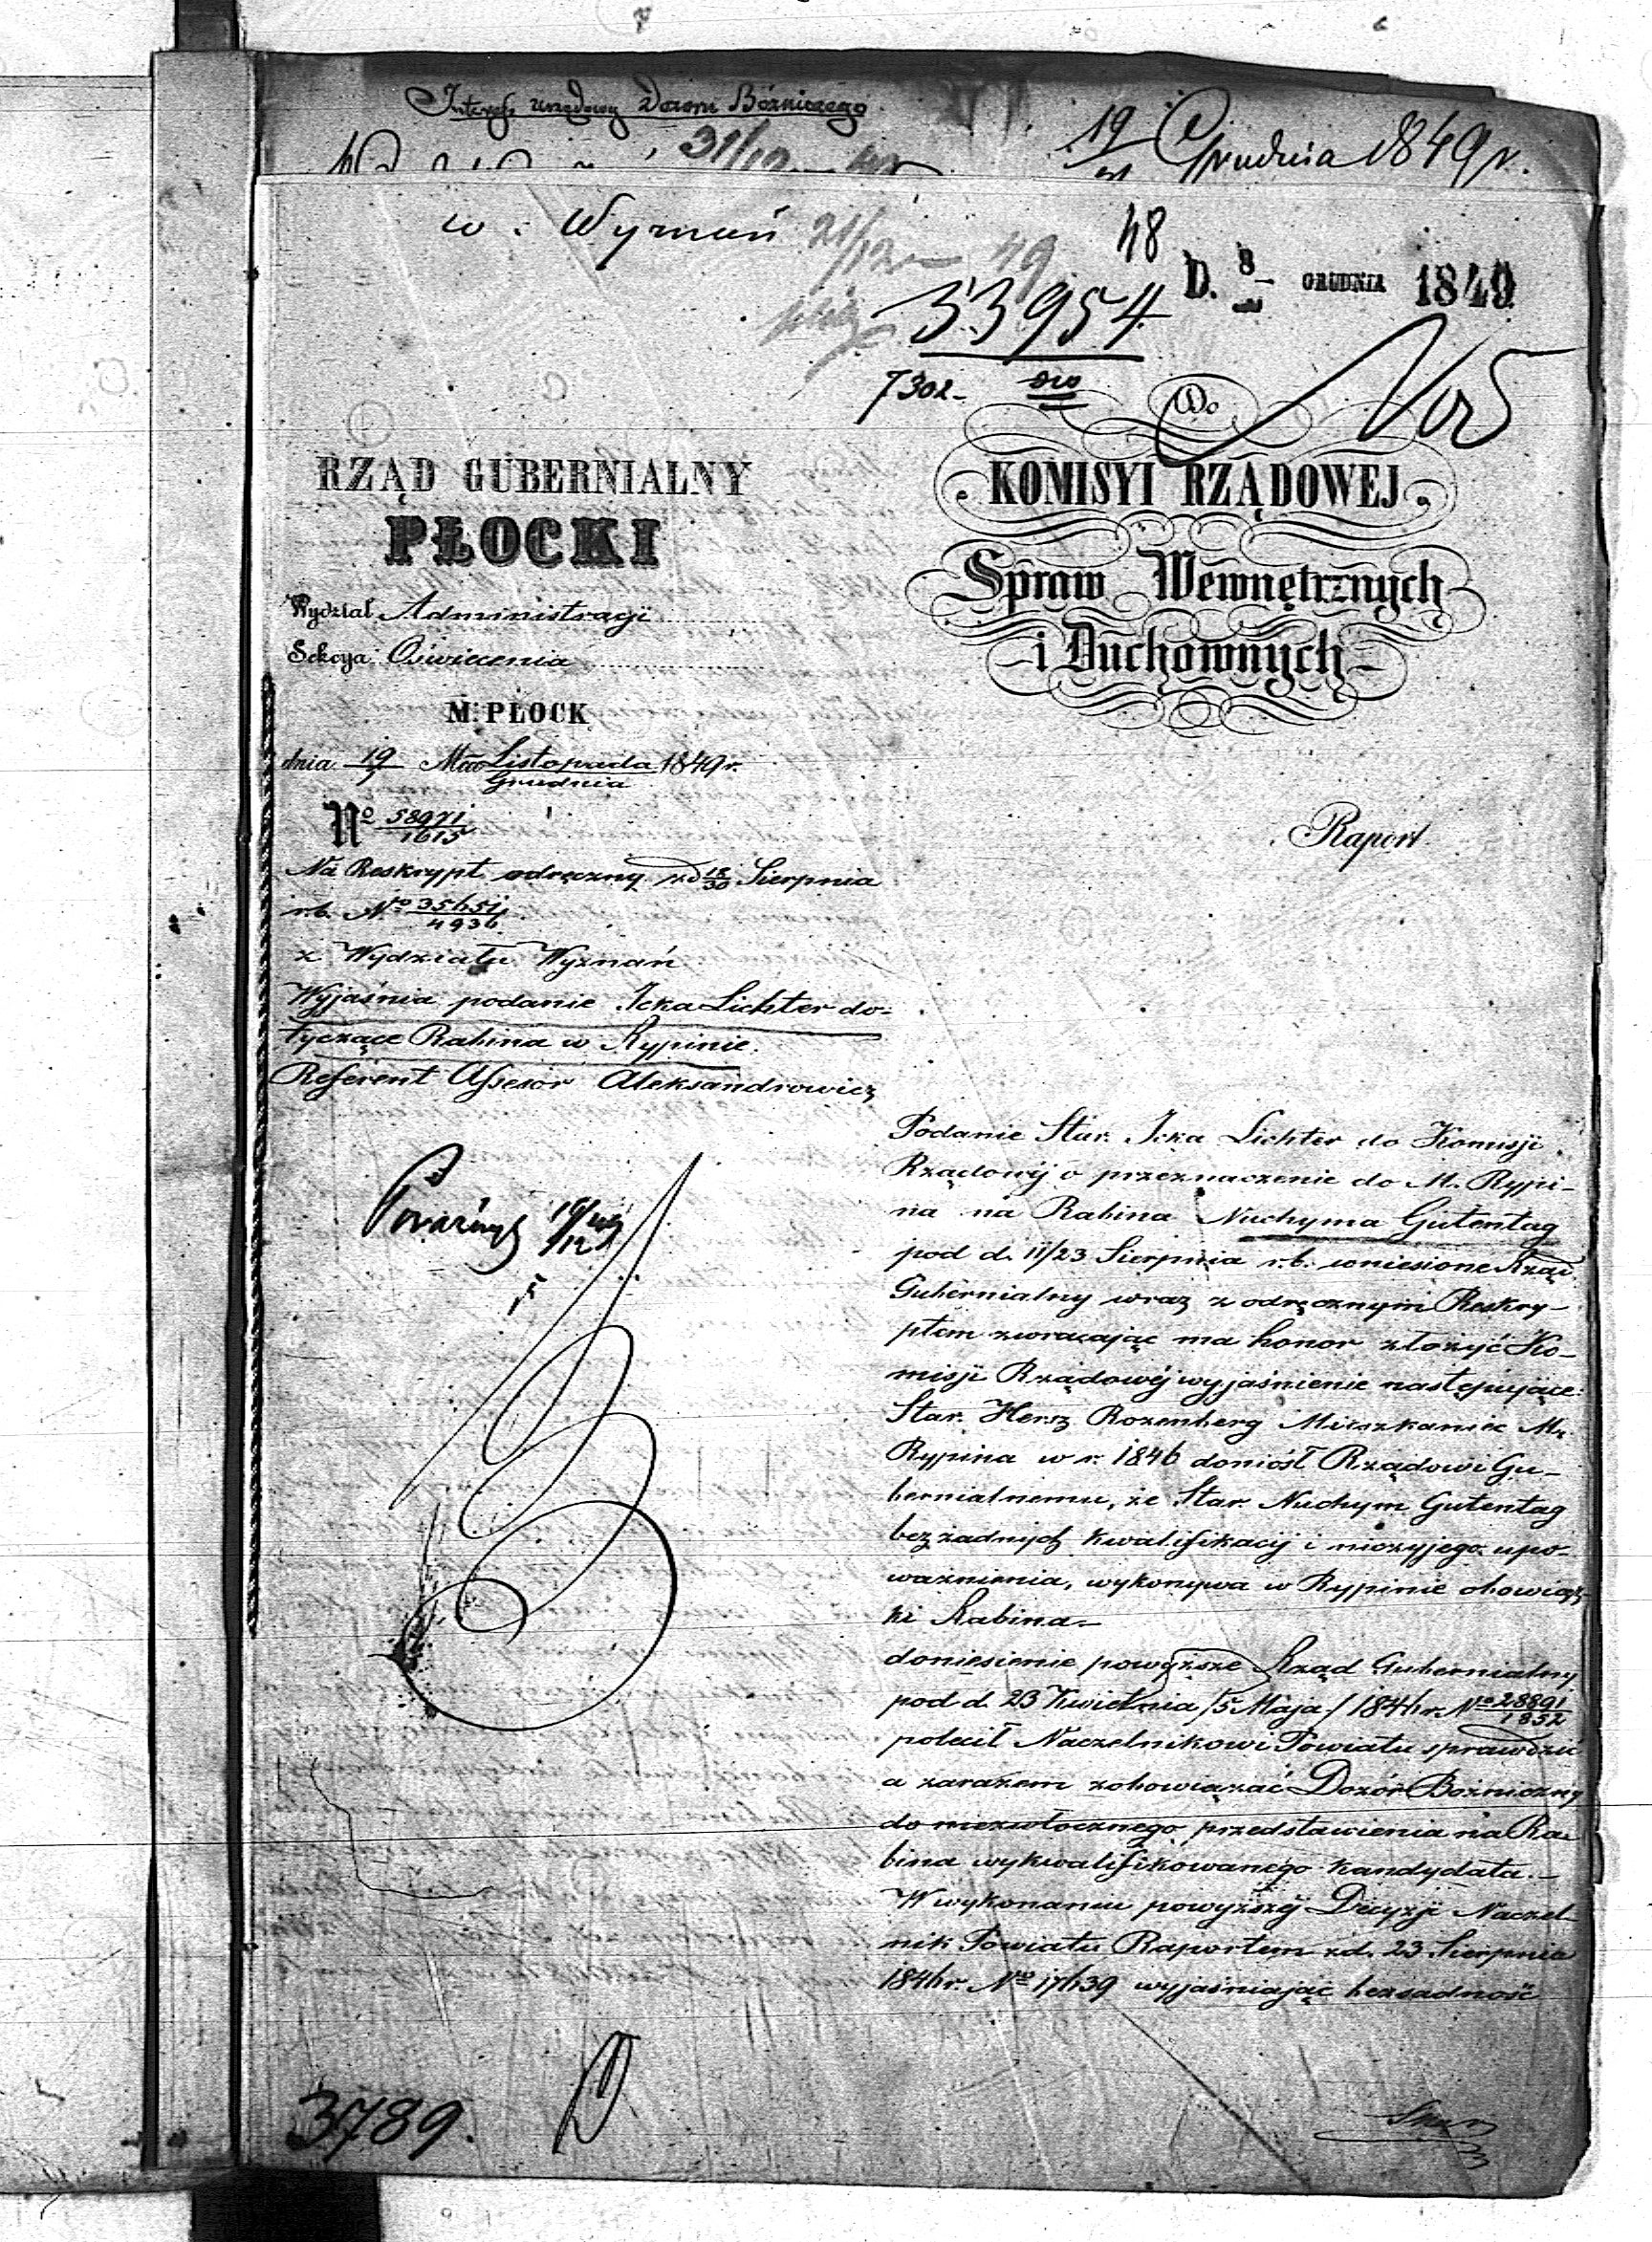 Interes urzędowy Dozoru Bóżniczego
31/12
19 Grudnia 1849 r.
w. Wyznań 21/12 49
48
D. 8 GRUDNIA 1849
33954
7302
Do
RZĄD GUBERNIALNY
PŁOCKI
KOMISYI RZĄDOWEJ
Spraw Wewnętrznych
i Duchownych
Wydział Administracji
Sekcya Oświecenia
M. PŁOCK
dnia 19/1 Mca Listopada/Grudnia 1849 r.
No 58971/1615
Raport
Na Reskrypt odręczny z d 18/30 Sierpnia
r.b. No 35651/4936
z Wydziału Wyznań
Wyjaśnia podanie Icka Lichter do-
tyczące Rabina w Rypinie.
Referent Assesor Aleksandrowicz
Podanie Star. Icka Lichter do Komisji
Rządowéj o przeznaczenie do M. Rypi-
na na Rabina Nuchyma Gutentag
pod d. 11/23 Sierpnia r.b. wniesione Rząd
Gubernialny wraz z odręcznym Reskry-
ptem zwracając ma honor złożyć Ko-
misji Rządowéj wyjaśnienie następujące:
Star. Hersz Rozenberg Mieszkaniec M.
Rypina w r. 1846 doniósł Rządowi Gu-
bernialnemu, że Star. Nuchym Gutentag
bez żadnych kwalifikacij i niczyjego upo-
ważnienia, wykonywa w Rypinie obowiąz-
ki Rabina.-
doniesienie powyższe Rząd Gubernialny
pod d. 23 Kwietnia /5 Maja/ 1846 r. No 28891/1852
polecił Naczelnikowi Powiatu sprawdzić
a zarazem zobowiązać Dozór Bożniczny
do niezwłocznego przedstawienia na Ra-
bina wykwalifikowanego kandydata.-
W wykonaniu powyższéj Decyzji Naczel-
nik Powiatu Raportem z d. 23 Sierpnia
1846 r. No 17639 wyjaśniając bezsadność
3789.